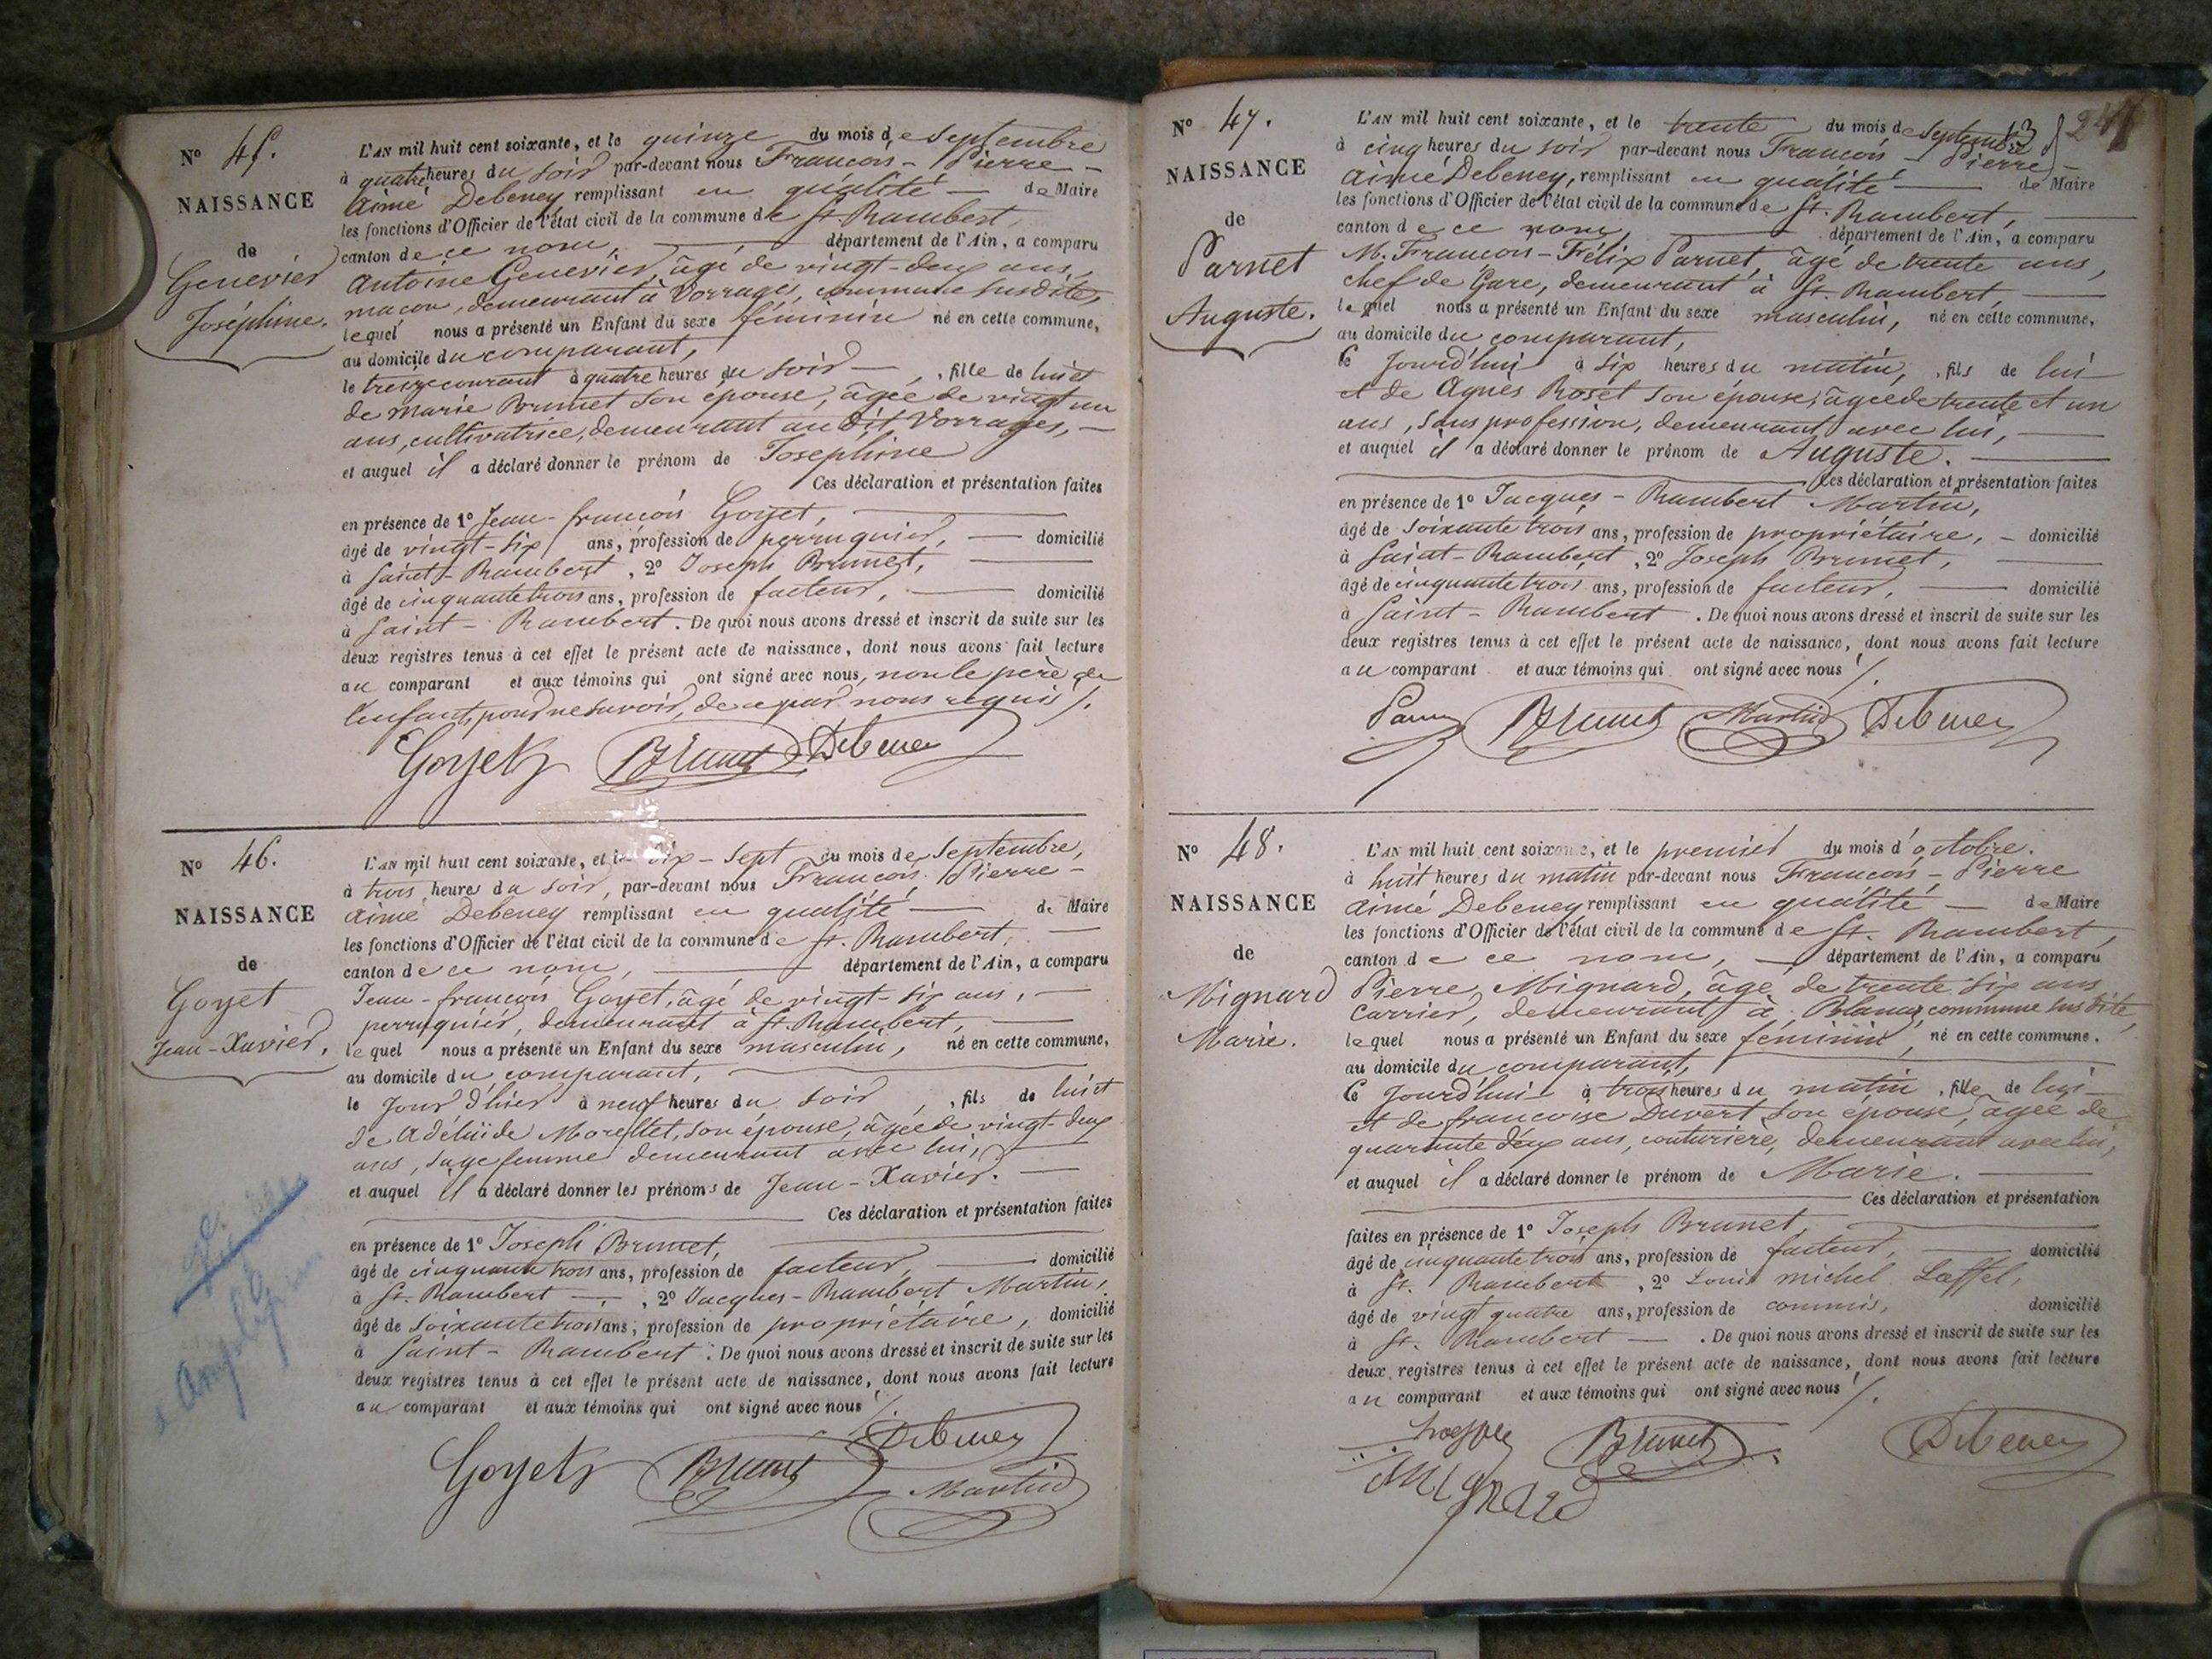 N° 45.
NAISSANCE
de
Genevier
Joséphine.
L'AN mil huit cent soixante, et le quinze du mois de Septembre
à quatre heures du soir par-devant nous François-Pierre-
Aimé Debeney remplissant en qualité — de Maire
les fonctions d'Officier de l'état civil de la commune de St. Rambert,
canton de ce nom, — département de l'Ain, a comparu
Antoine Genevier, âgé de vingt-deux ans,
maçon, demeurant à Vorrages, commune susdite,
lequel nous a présenté un Enfant du sexe féminin né en cette commune,
au domicile du comparant,
le treize courant à quatre heures du soir —, fille de lui et
de Marie Brunet son épouse, âgée de vingt un
ans, cultivatrice, demeurant au dit Vorrages, —
et auquel il a déclaré donner le prénom de Joséphine
Ces déclaration et présentation faites
en présence de 1° Jean-françois Goyet, —
âgé de vingt-six ans, profession de perruquier, — domicilié
à Saint-Rambert, 2° Joseph Brunet, —
âgé de cinquante trois ans, profession de facteur, — domicilié
à Saint-Rambert. De quoi nous avons dressé et inscrit de suite sur les
deux registres tenus à cet effet le présent acte de naissance, dont nous avons fait lecture
au comparant et aux témoins qui ont signé avec nous, non le père de
l'enfant, pour ne savoir, de ce par nous requis /.
Goyet Brunet Debeney
N° 46.
NAISSANCE
de
Goyet
Jean-Xavier.
L'AN mil huit cent soixante, et le dix-sept du mois de Septembre,
à trois heures du soir, par-devant nous François Pierre-
Aimé Debeney remplissant en qualité — de Maire
les fonctions d'Officier de l'état civil de la commune de St. Rambert, —
canton de ce nom, — département de l'Ain, a comparu
Jean-françois Goyet, âgé de vingt-six ans, —
perruquier, demeurant à St. Rambert, —
lequel nous a présenté un Enfant du sexe masculin, né en cette commune,
au domicile du comparant, —
le jour d'hier à neuf heures du soir, fils de lui et
de Adélaïde Morellet, son épouse, âgée de vingt-deux
ans, sage femme demeurant avec lui, —
et auquel il a déclaré donner les prénoms de Jean-Xavier. —
Ces déclaration et présentation faites
en présence de 1° Joseph Brunet, —
âgé de cinquante trois ans, profession de facteur — domicilié
à St. Rambert —, 2° Jacques-Rambert Martin,
âgé de soixante trois ans, profession de propriétaire, domicilié
à Saint-Rambert. De quoi nous avons dressé et inscrit de suite sur les
deux registres tenus à cet effet le présent acte de naissance, dont nous avons fait lecture
au comparant et aux témoins qui ont signé avec nous /.
Goyet Brunet Debeney
Martin
N° 47.
NAISSANCE
de
Parnet
Auguste.
L'AN mil huit cent soixante, et le trente du mois de Septembre
à cinq heures du soir par-devant nous François-Pierre-
Aimé Debeney, remplissant en qualité — de Maire
les fonctions d'Officier de l'état civil de la commune de St. Rambert, —
canton de ce nom, — département de l'Ain, a comparu
M. François-Félix Parnet, âgé de trente ans,
chef de Gare, demeurant à St. Rambert, —
lequel nous a présenté un Enfant du sexe masculin, né en cette commune,
au domicile du comparant,
Ce jourd'hui à six heures du matin, fils de lui
et de Agnès Roset son épouse, âgée de trente et un
ans, sans profession, demeurant avec lui, —
et auquel il a déclaré donner le prénom de Auguste. —
Ces déclaration et présentation faites
en présence de 1° Jacques-Rambert Martin,
âgé de soixante trois ans, profession de propriétaire, — domicilié
à Saint-Rambert, 2° Joseph Brunet, —
âgé de cinquante trois ans, profession de facteur, — domicilié
à Saint-Rambert. De quoi nous avons dressé et inscrit de suite sur les
deux registres tenus à cet effet le présent acte de naissance, dont nous avons fait lecture
au comparant et aux témoins qui ont signé avec nous /.
Brunet Martin Debeney
N° 48.
NAISSANCE
de
Mignard
Marie.
L'AN mil huit cent soixante, et le premier du mois d'octobre.
à huit heures du matin par-devant nous François-Pierre
Aimé Debeney remplissant en qualité — de Maire
les fonctions d'Officier de l'état civil de la commune de St. Rambert,
canton de ce nom, — département de l'Ain, a comparu
Pierre Mignard, âgé de trente six ans
carrier, demeurant à Blanaz commune susdite,
lequel nous a présenté un Enfant du sexe féminin, né en cette commune.
au domicile du comparant,
Ce jourd'hui à trois heures du matin, fille de lui
et de françoise Duvert son épouse, âgée de
quarante deux ans, couturière, demeurant avec lui,
et auquel il a déclaré donner le prénom de Marie. —
Ces déclaration et présentation
faites en présence de 1° Joseph Brunet, —
âgé de cinquante trois ans, profession de facteur, — domicilié
à St. Rambert, 2° Louis Michel Lœffel,
âgé de vingt quatre ans, profession de commis, domicilié
à St. Rambert —. De quoi nous avons dressé et inscrit de suite sur les
deux registres tenus à cet effet le présent acte de naissance, dont nous avons fait lecture
au comparant et aux témoins qui ont signé avec nous /.
Brunet Debeney
Mignard